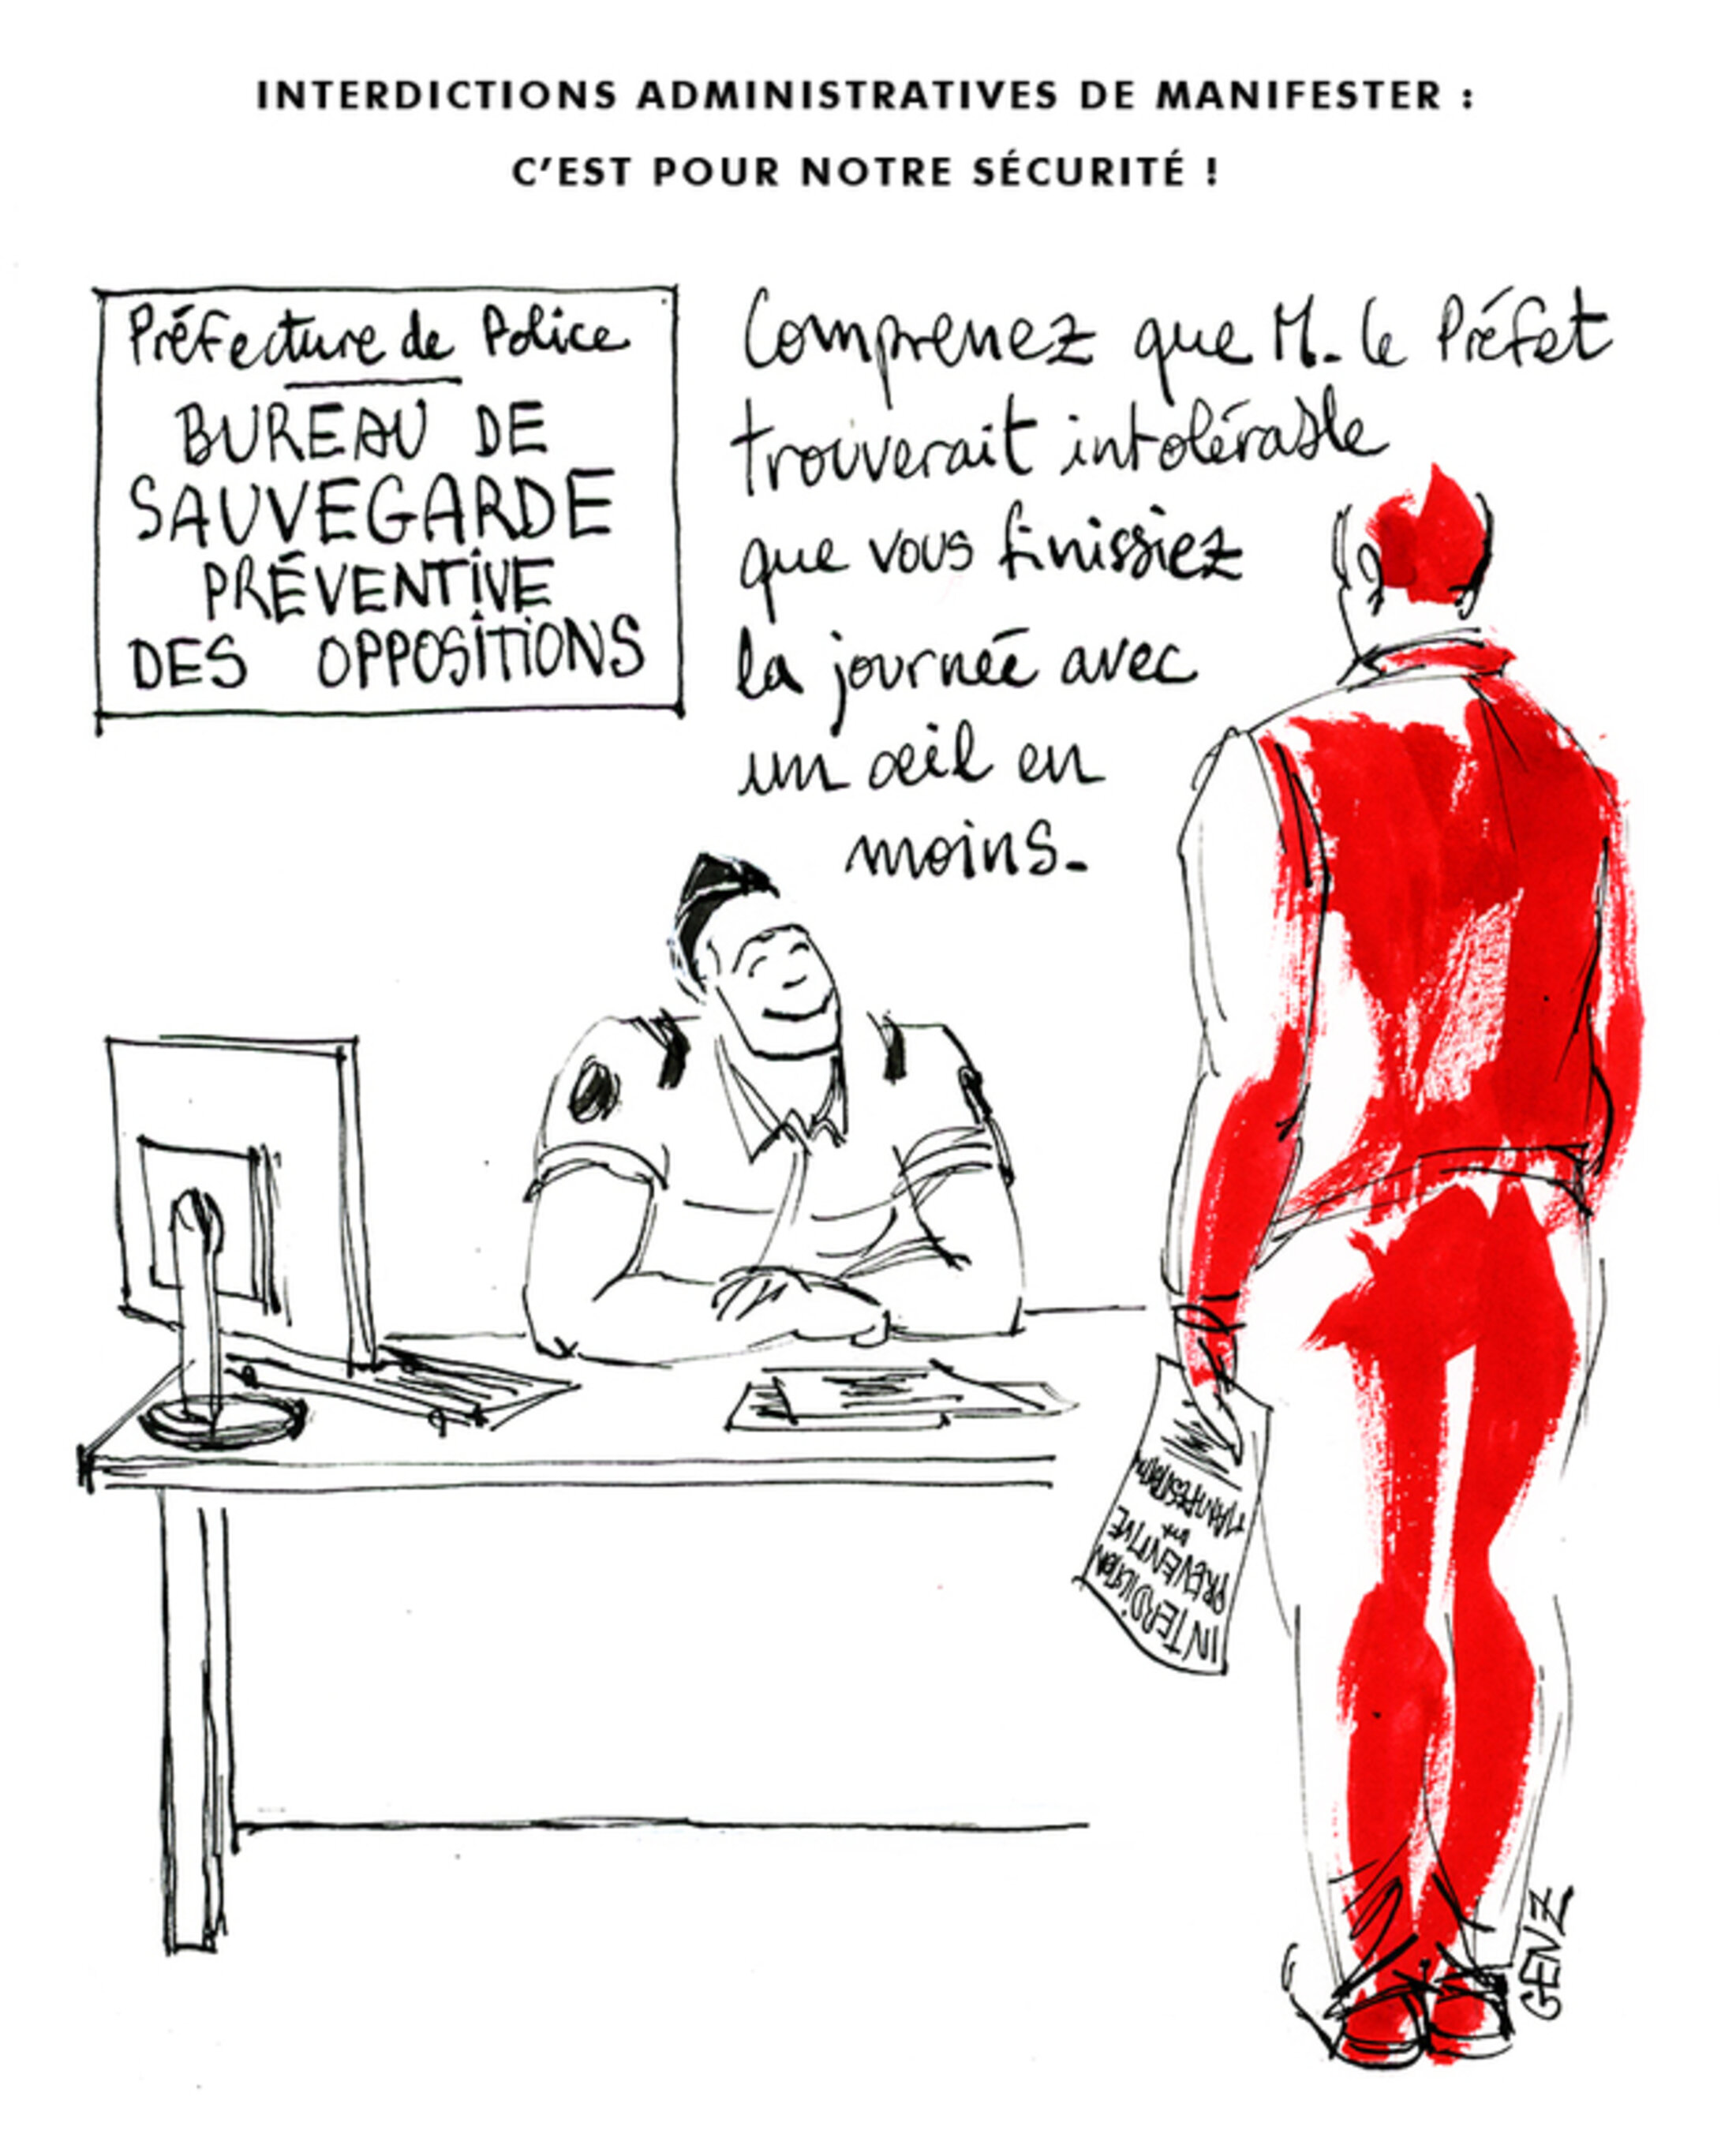 INTERDICTIONS ADMINISTRATIVES DE MANIFESTER :
C'EST POUR NOTRE SÉCURITÉ !
Préfecture de Police
BUREAU DE
SAUVEGARDE
PRÉVENTIVE
DES OPPOSITIONS
Comprenez que M. le Préfet
trouverait intolérable
que vous finissiez
la journée avec
un oeil en
moins.
INTERDICTION
PREVENTIVE
MANIFESTATION
GENZ